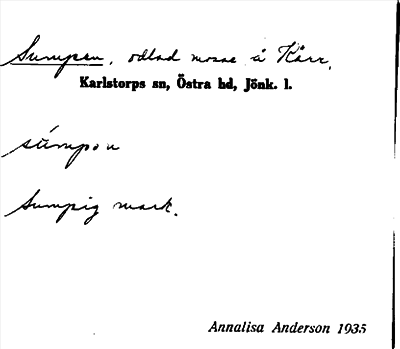 Sumpen, odlad mosse å Kärr.
Karlstorps sn, Östra hd, Jönk. l.
súmpen
Sumpig mark.
Annalisa Anderson 1935